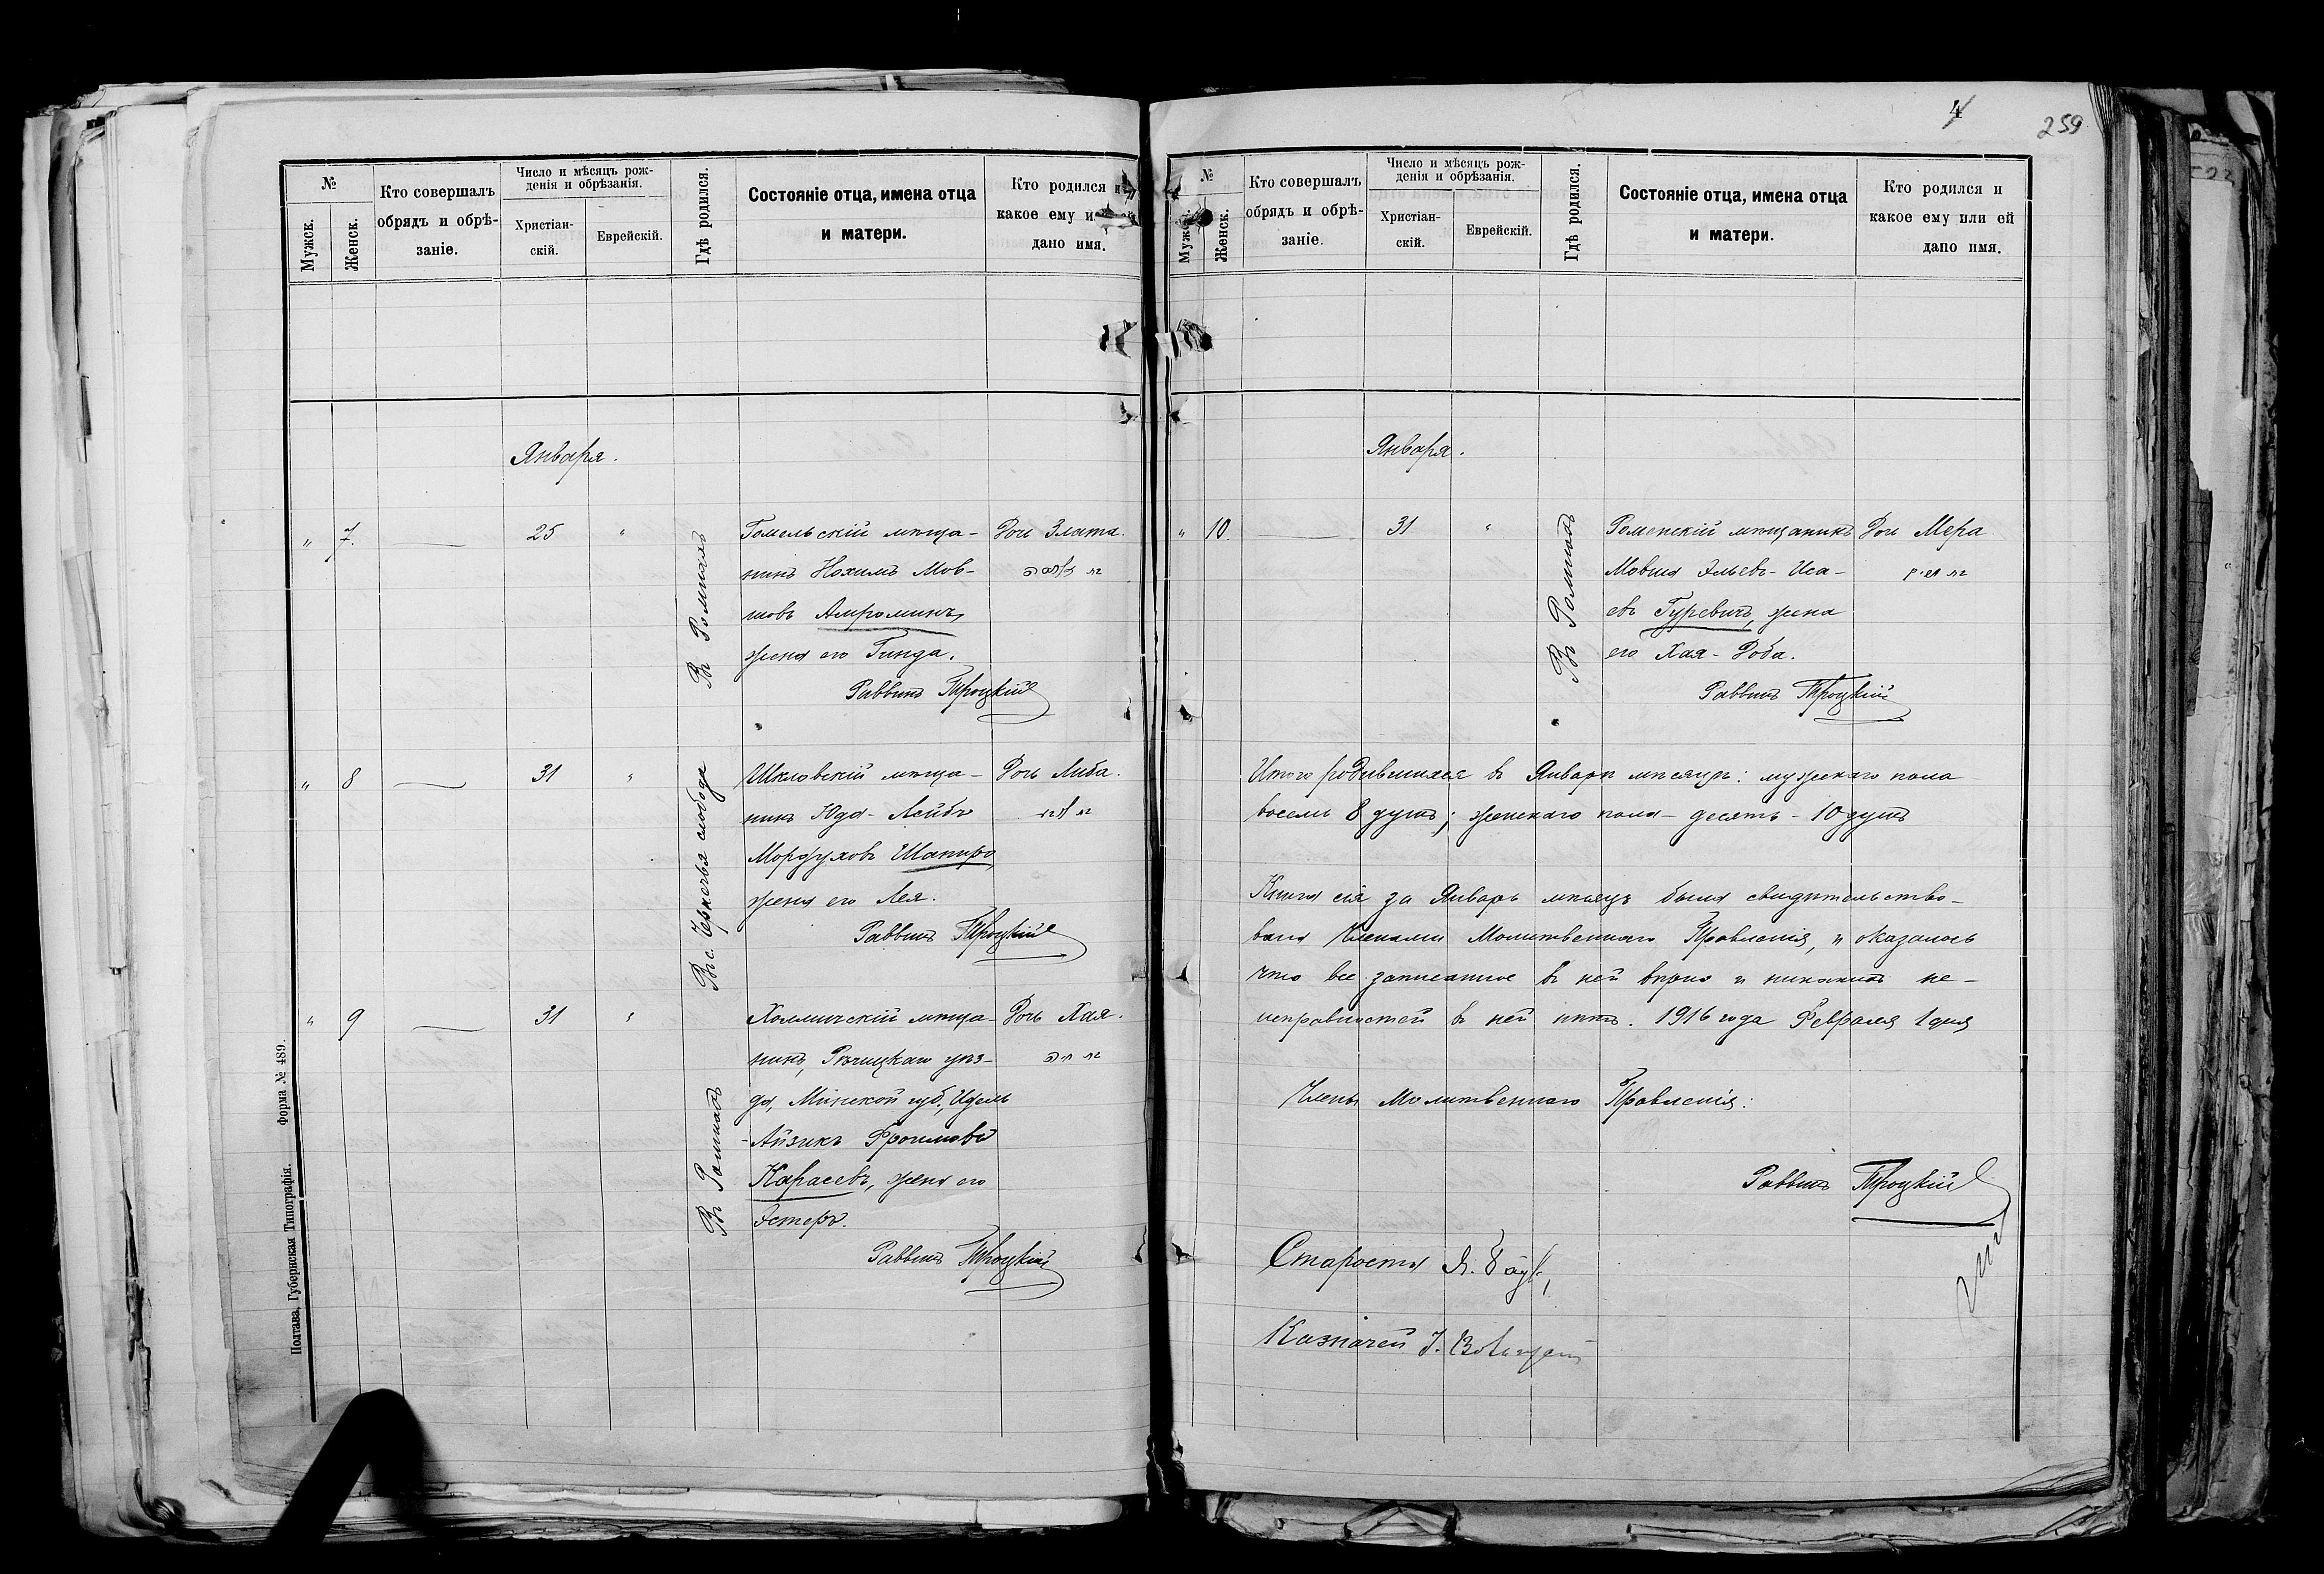 4
259
№
Мужск.
Женск.
Кто совершалъ
обрядъ и обрѣ-
заніе.
Число и мѣсяцъ рож-
денія и обрѣзанія.
Христіан-
скій.
Еврейскій.
Гдѣ родился.
Состояніе отца, имена отца
и матери.
Кто родился и
какое ему и
дано имя.
Января.
„ 7. 25 "
Въ Ромнахъ
Гомельскій мѣща-
нинъ Нохимъ Мов-
шовъ Амроминъ,
жена его Гинда.
Раввинъ Троцкій
Дочь Злата.
„ 8 31 "
Въ с. слобода
Шкловскій мѣща-
нинъ Юда-Лейбъ
Мордуховъ Шапиро,
жена его Лея.
Раввинъ Троцкій
Дочь Либа.
„ 9 31 "
Въ Ромнахъ
Холмичскій мѣща-
нинъ, Рѣчицкаго уѣз-
да, Минской губ., Идель
-Айзикъ Фроимовъ
Карасевъ, жена его
Эстеръ.
Раввинъ Троцкій
Дочь Хая.
Форма № 489.
Полтава, Губернская Типографія.
№
Мужск.
Женск.
Кто совершалъ
обрядъ и обрѣ-
заніе.
Число и мѣсяцъ рож-
денія и обрѣзанія.
Христіан-
скій.
Еврейскій.
Гдѣ родился.
Состояніе отца, имена отца
и матери.
Кто родился и
какое ему или ей
дано имя.
Января.
„ 10. 31 "
Въ Ромнахъ
Роменскій мѣщанинъ
Мовша Эльевъ-Иса-
евъ Гуревичъ, жена
его Хая-Доба.
Раввинъ Троцкій
Дочь Мера
Итого родившихся въ Январѣ мѣсяцѣ: мужскаго пола
восемь 8 душъ; женскаго пола – десять – 10 душъ
Книга сія за Январь мѣсяцъ была свидѣтельство-
вана Членами Молитвеннаго Правленія, и оказалось
что все записанное въ ней вѣрно и никакихъ не-
исправностей въ ней нѣтъ. 1916 года Февраля 1 дня
Члены Молитвеннаго Правленія:
Раввинъ Троцкій
Староста Я.
Казначей